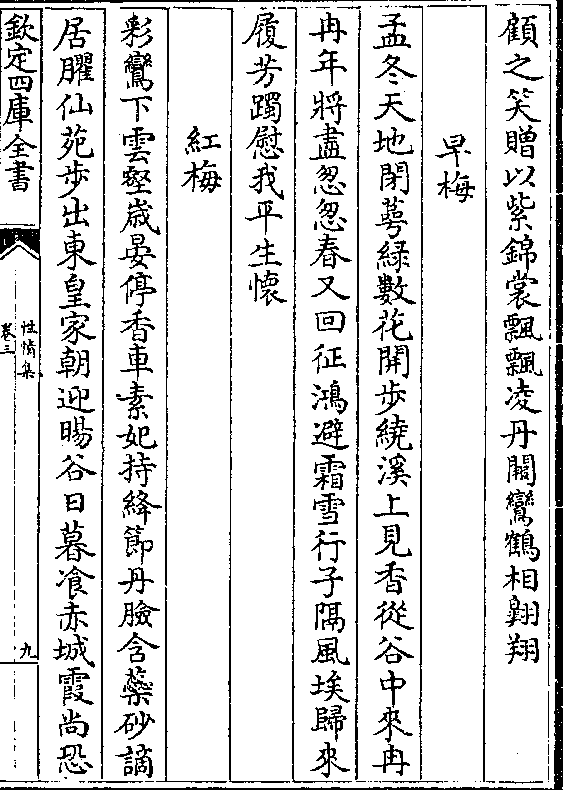 顧之笑贈以紫錦裳飄飄凌丹闕鸞鶴相翺翔
早梅
孟冬天地閉萼緑數花開歩繞溪上見香從谷中來冉
冉年將盡忽忽春又回征鴻避霜雪行子隔風埃歸來
履芳躅慰我平生懷
紅梅
彩鸞下雲壑歳晏停香車素妃持絳節丹臉含蘂砂謫
居臞仙苑歩出東皇家朝迎暘谷日暮飡赤城霞尚恐
欽定四庫全書
性情集
卷三
九